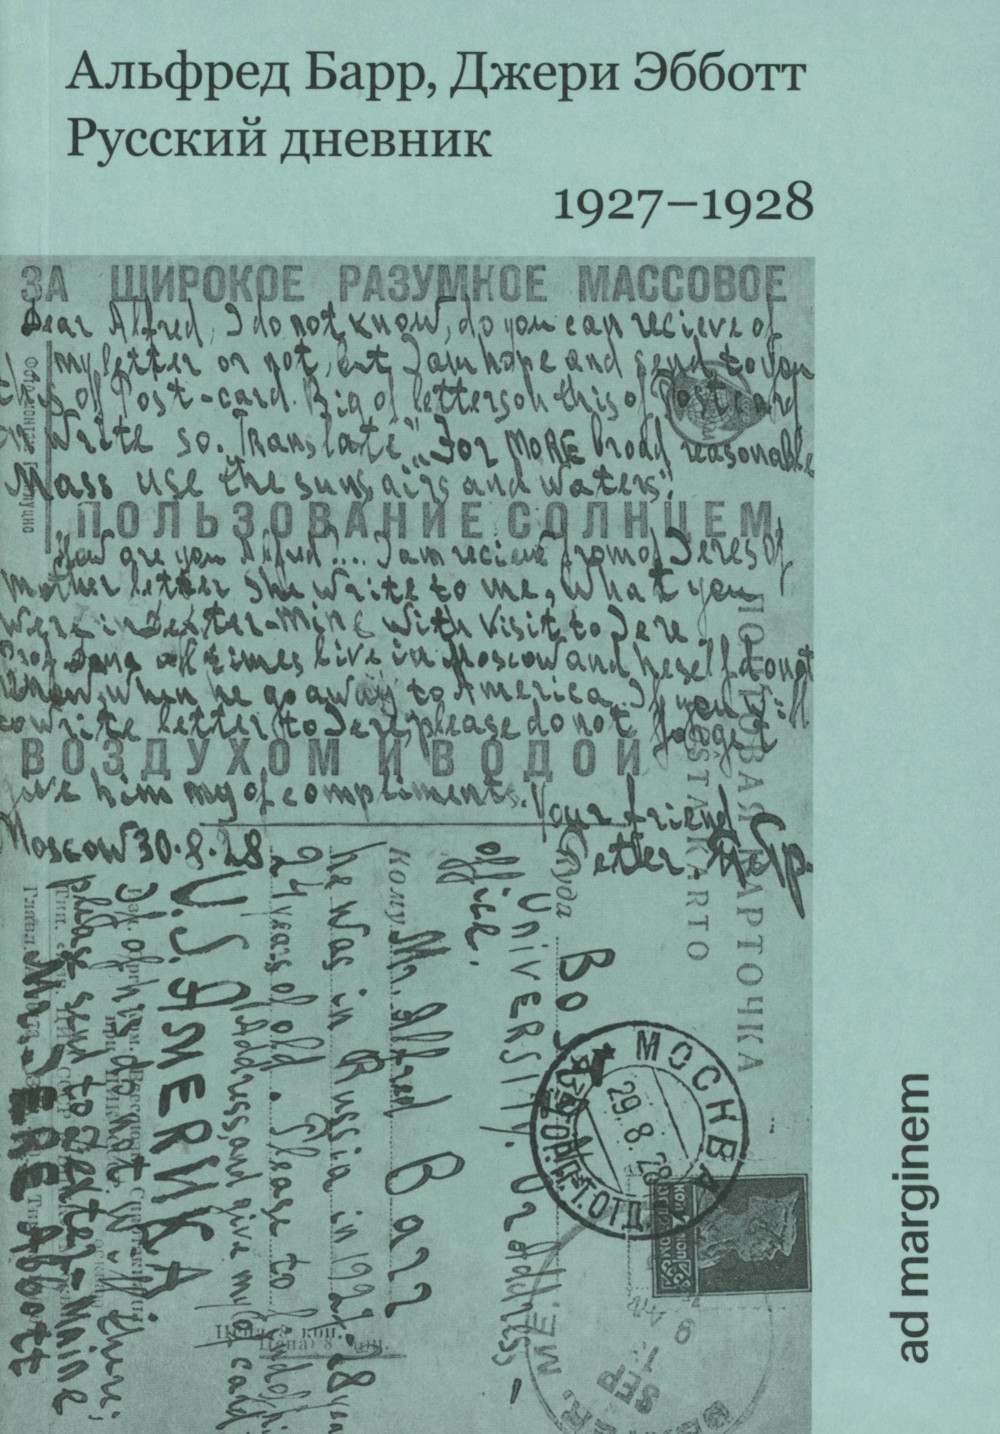 Альфред Барр, Джери Эбботт
Русский дневник
1927–1928
ЗА ШИРОКОЕ РАЗУМНОЕ МАССОВОЕ
Dear Alfred, I do not know, do you can recieve of
my letter or not, but I am hope and send to you
this of Post-card. Big of letters on this of Postcard
Write so. Translate „For MORE broad reasonable
Mass use the suns, airs and waters".
ПОЛЬЗОВАНИЕ СОЛНЦЕМ
How are you Alfred.... I am recieve from of Jeres of
mother letter She write to me, What you
were in Dexter-Mine With visit to Jere
times live in Moscow and heself do not
know, when he go away to America. If you will
write letter to Jere, please do not forget
ВОЗДУХОМ И ВОДОЙ
give him my of compliments. Your friend
Moscow 30.8.28
ПОЧТОВАЯ КАРТОЧКА
Куда
office.
UNIVERSITY. Or address-
Кому Mr. Alfred Barr
he was in Russia in 1927-28
24 years of old. Please to find of his
Address, and give my of card
U.S. AMERIKA
please send to Dexter-Maine
Mr. JERE Abbott
МОСКВА
29.8.28
Цена 8 коп.
SEP
ad marginem